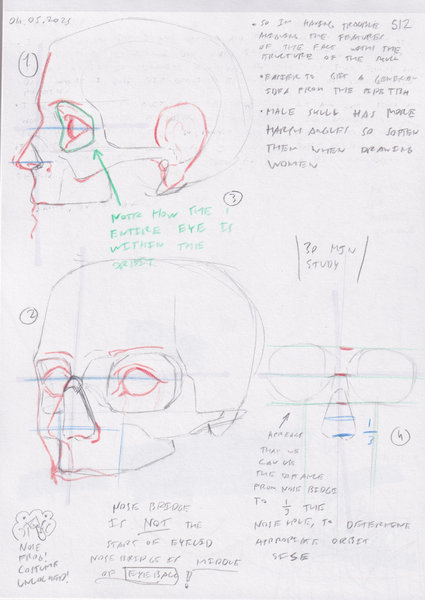 04.05.2023
512
• SO IM HAVING TROUBLE
ALIGNING THE FEATURES
OF THE FACE WITH THE
STRUCTURE OF THE SKULL
• EASIER TO GET A GENERAL
IDEA FROM THE
• MALE SKULL HAS MORE
HARSH ANGLES SO SOFTEN
THEM WHEN DRAWING
WOMEN
1
3
NOTE HOW THE
ENTIRE EYE IS
WITHIN THE
ORBIT
30 MIN
STUDY
2
1/3
4
APPEARS
THAT WE
CAN USE
THE DISTANCE
FROM NOSE BRIDGE
TO 1/3 THE
NOSE HOLE, TO DETERMINE
APPROPRIATE ORBIT
SIZE
NOSE BRIDGE
IS NOT THE
START OF EYELID
NOSE BRIDGE IS MIDDLE
OF EYEBALL !!
NOSE
FROG!
COSTUME
UNLOCKED!